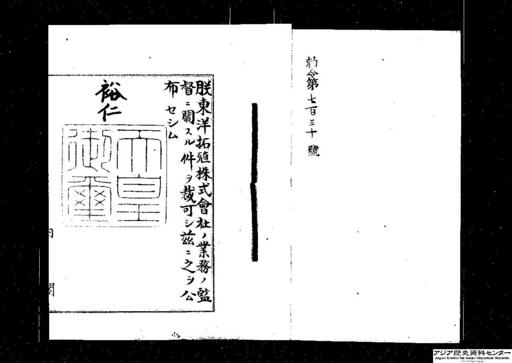 勅令第七百三十號
朕東洋拓殖株式會社ノ業務ノ監
督ニ關スル件ヲ裁可シ玆ニ之ヲ公
布セシム
裕仁
天皇
御璽
内閣
アジア歴史資料センター
Japan Center for Asian Historical Records